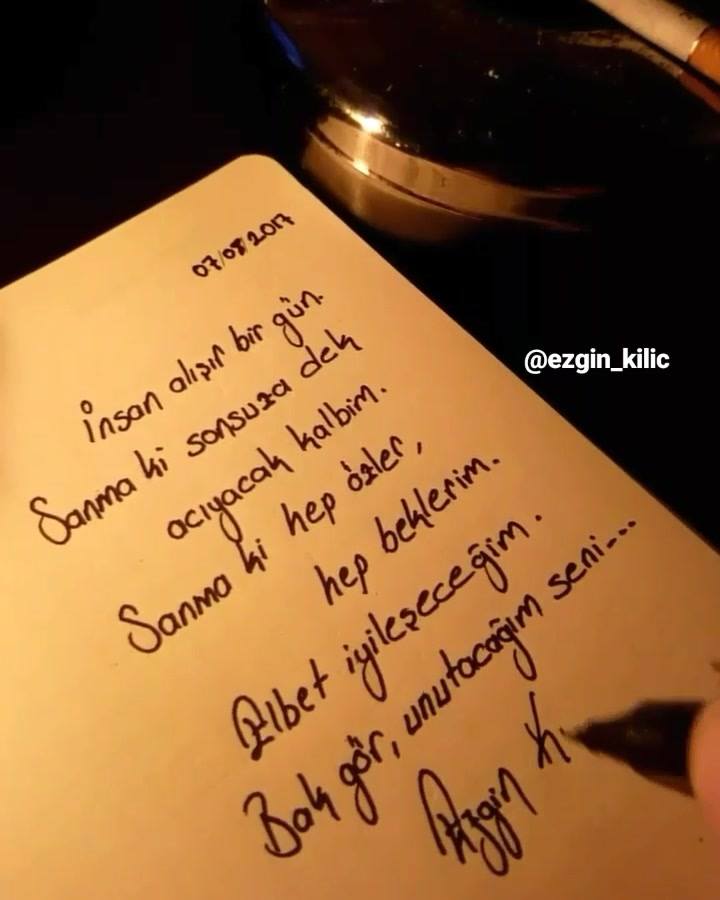 07/08/2017
İnsan alışır bir gün.
Sanma ki sonsuza dek
acıyacak kalbim.
Sanma ki hep özler,
hep beklerim.
Elbet iyileşeceğim.
Bak gör, unutacağım seni...
Ezgin K.
@ezgin_kilic